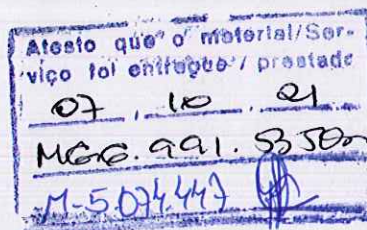 Atesto que o material/Ser-
viço foi entregue / prestado
07 , 10 , 21
M-5.074.447